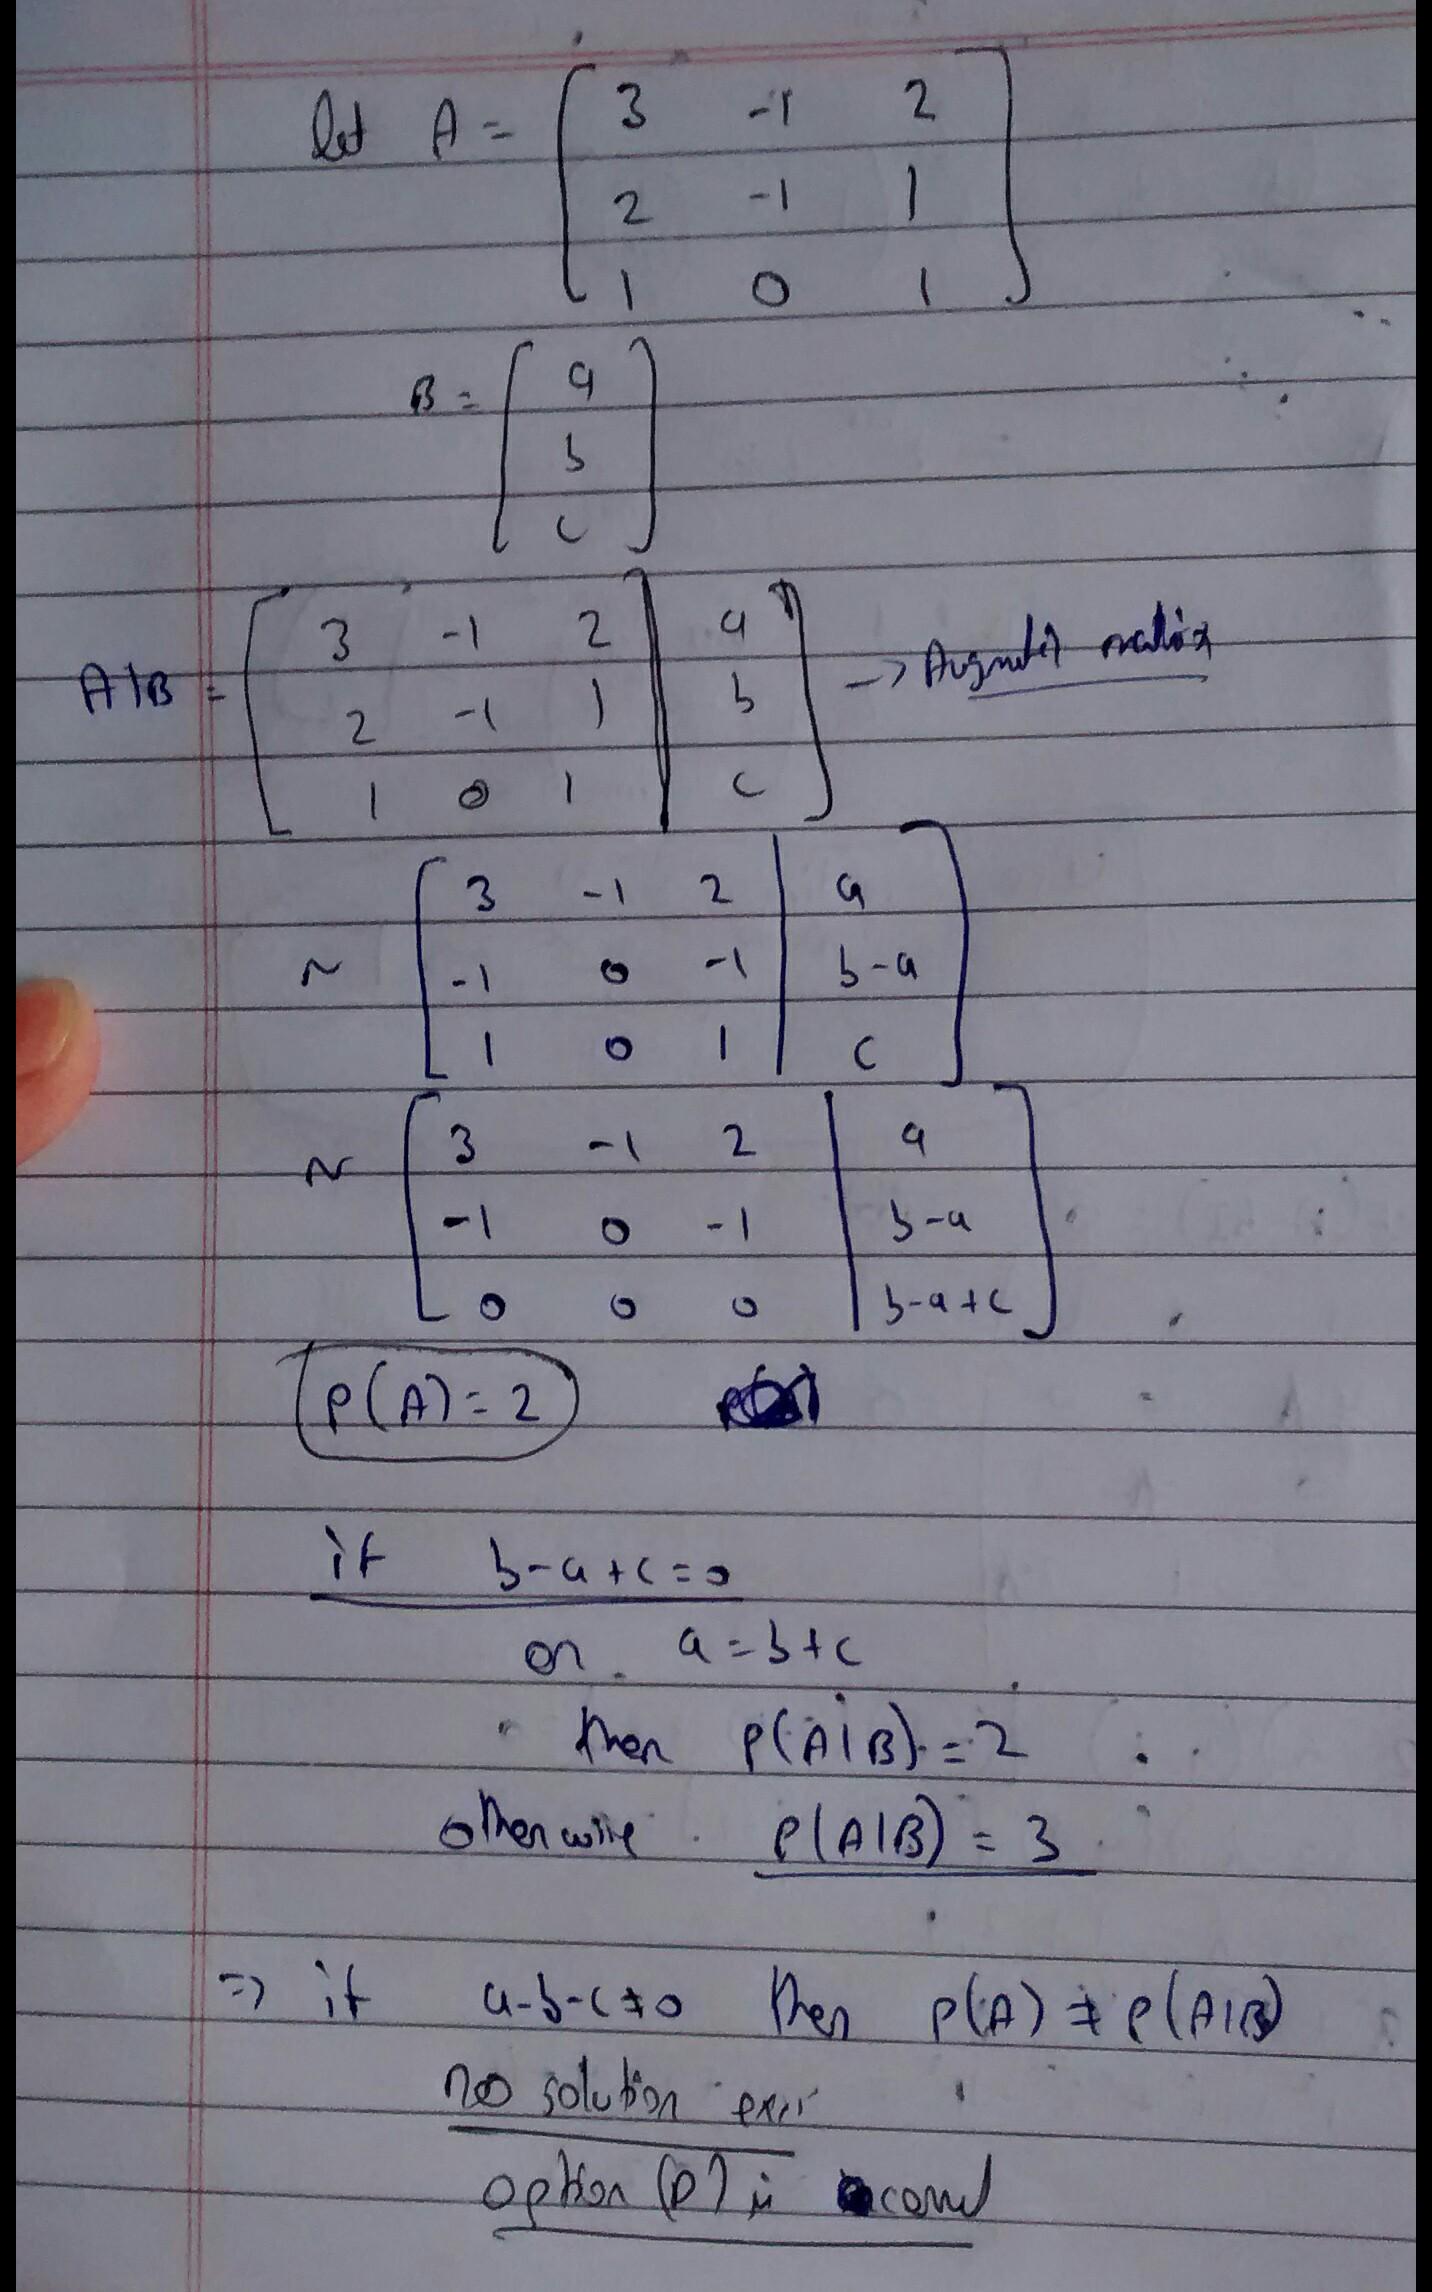 let A = [ 3 -1 2
2 -1 1
1 0 1 ]
B = [ a
b
c ]
A|B = [ 3 -1 2 | a
2 -1 1 | b
1 0 1 | c ] →
~ [ 3 -1 2 | a
-1 0 -1 | b-a
1 0 1 | c ]
~ [ 3 -1 2 | a
-1 0 -1 | b-a
0 0 0 | b-a+c ]
ρ(A) = 2
if b-a+c=0
or a=b+c
then ρ(A|B) = 2
otherwise ρ(A|B) = 3
=> if a-b-c≠0 then ρ(A) ≠ ρ(A|B)
no solution
option (D) is